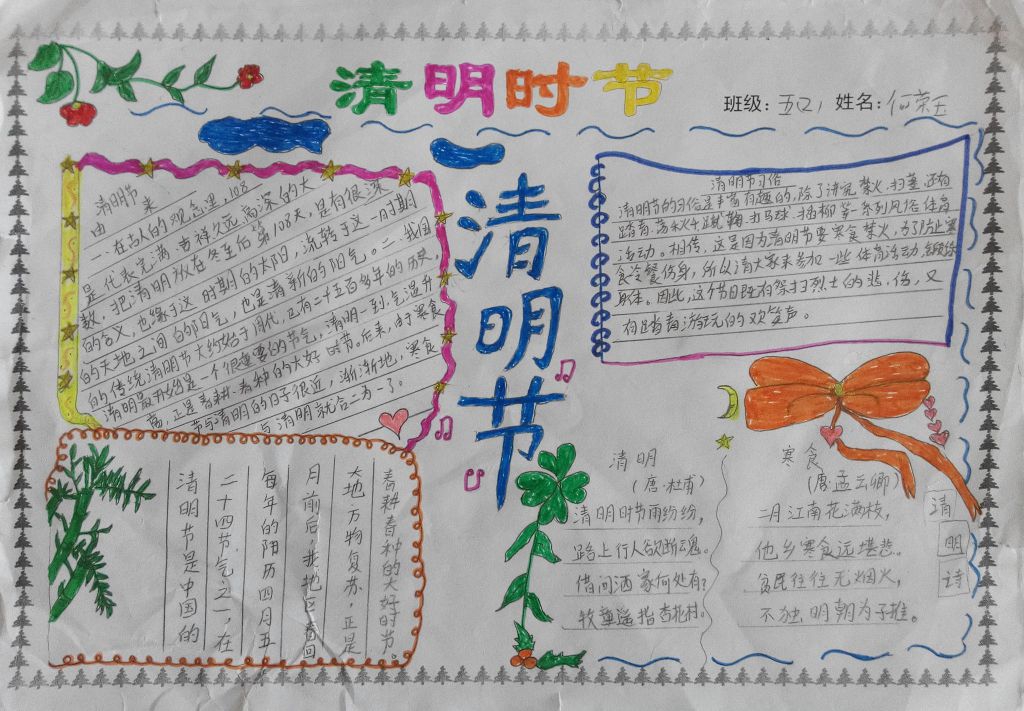 清明时节
班级：五(2) 姓名：何荣玉
清明节
清明节来
由 一在古人的观念里，108
是代表完满、吉祥久远、高深的大
数，把清明放在冬至后第108天，是有很深
的含义，也缘于这一时期的太阳，流转于这一时期
的天地之间的阳气，也是清新的阳气。二、我国
的传统清明节大约始于周代，已有二千五百多年的历史，
清明最开始是一个很重要的节气，清明一到，气温升
高，正是春耕春种的大好时节。后来，由于寒食
节与清明的日子很近，渐渐地，寒食
与清明就合二为一了。
清明节习俗
清明节的习俗是丰富有趣的，除了讲究禁火、扫墓，还有
踏青、荡秋千、蹴鞠、打马球、插柳等一系列风俗体育
活动。相传，这是因为清明节要寒食禁火，为了防止寒
食冷餐伤身，所以请大家来参加一些体育活动，锻炼
身体。因此，这个节日既有祭扫烈士的悲伤，又
有踏青游玩的欢笑声。
清明节是中国的
二十四节气之一，在
每年的阳历四月五
月前后，我地区春回
大地万物复苏，正是
春耕春种的大好时节。
清明
（唐·杜甫）
清明时节雨纷纷，
路上行人欲断魂。
借问酒家何处有？
牧童遥指杏花村。
寒食
（唐·孟云卿）
二月江南花满枝，
他乡寒食远堪悲。
贫民往往无烟火，
不独明朝为子推。
清
明
诗